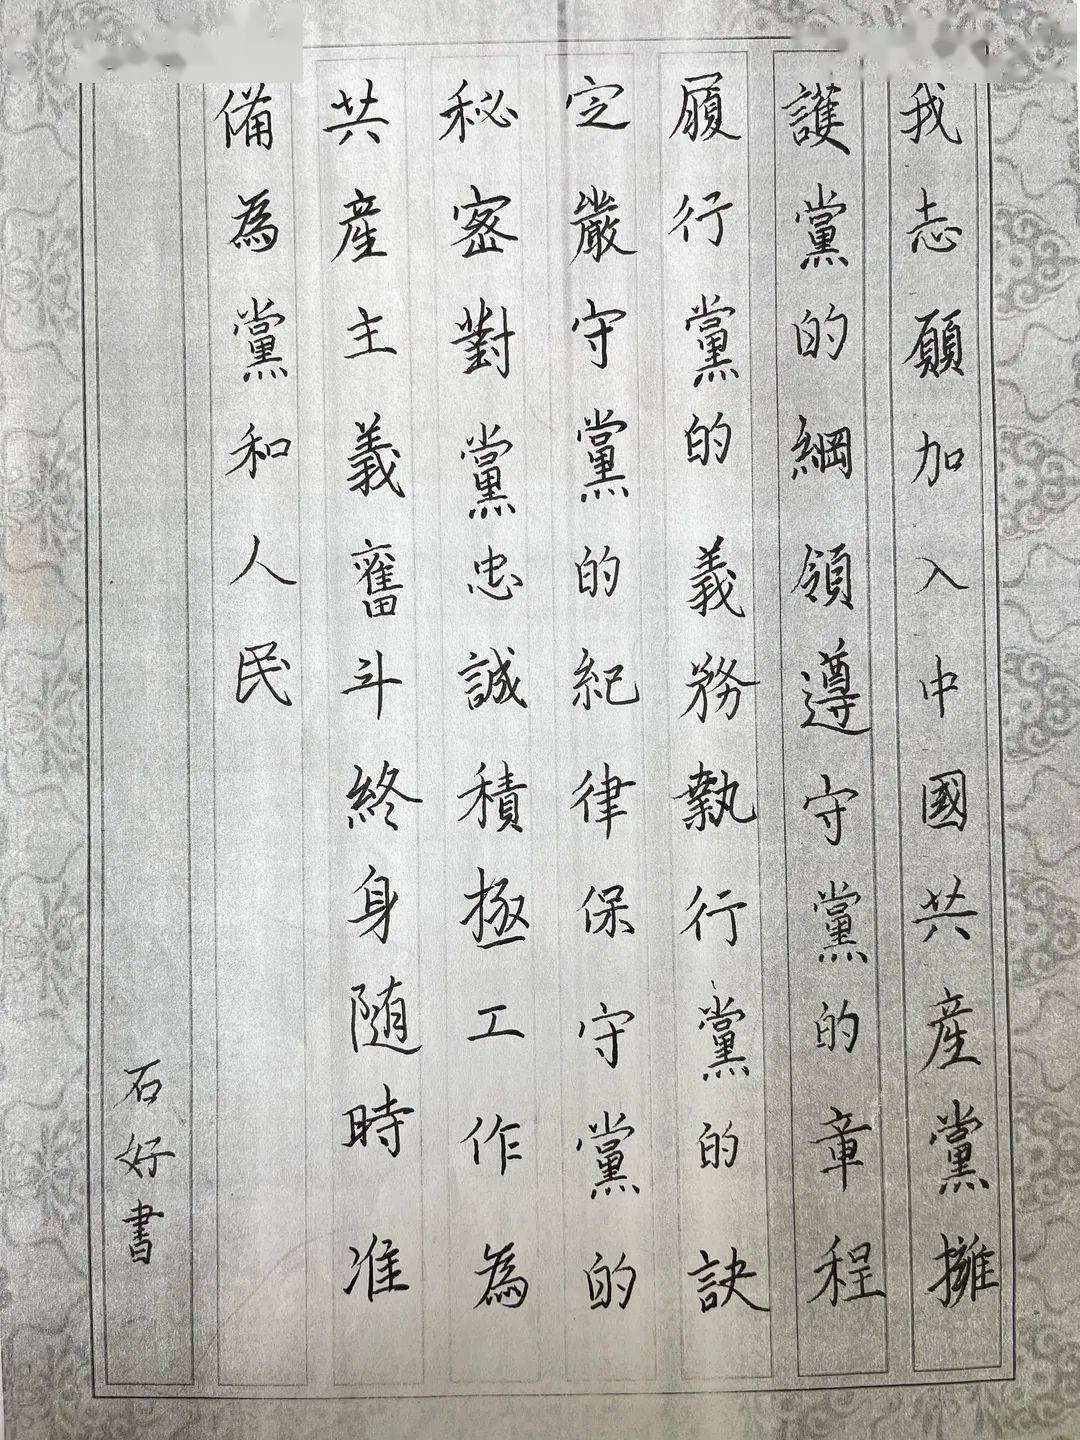 我志願加入中國共産黨擁
護黨的綱領遵守黨的章程
履行黨的義務執行黨的訣
定嚴守黨的紀律保守黨的
秘密對黨忠誠積極工作為
共産主義奮斗終身随時准
備為黨和人民
石好書